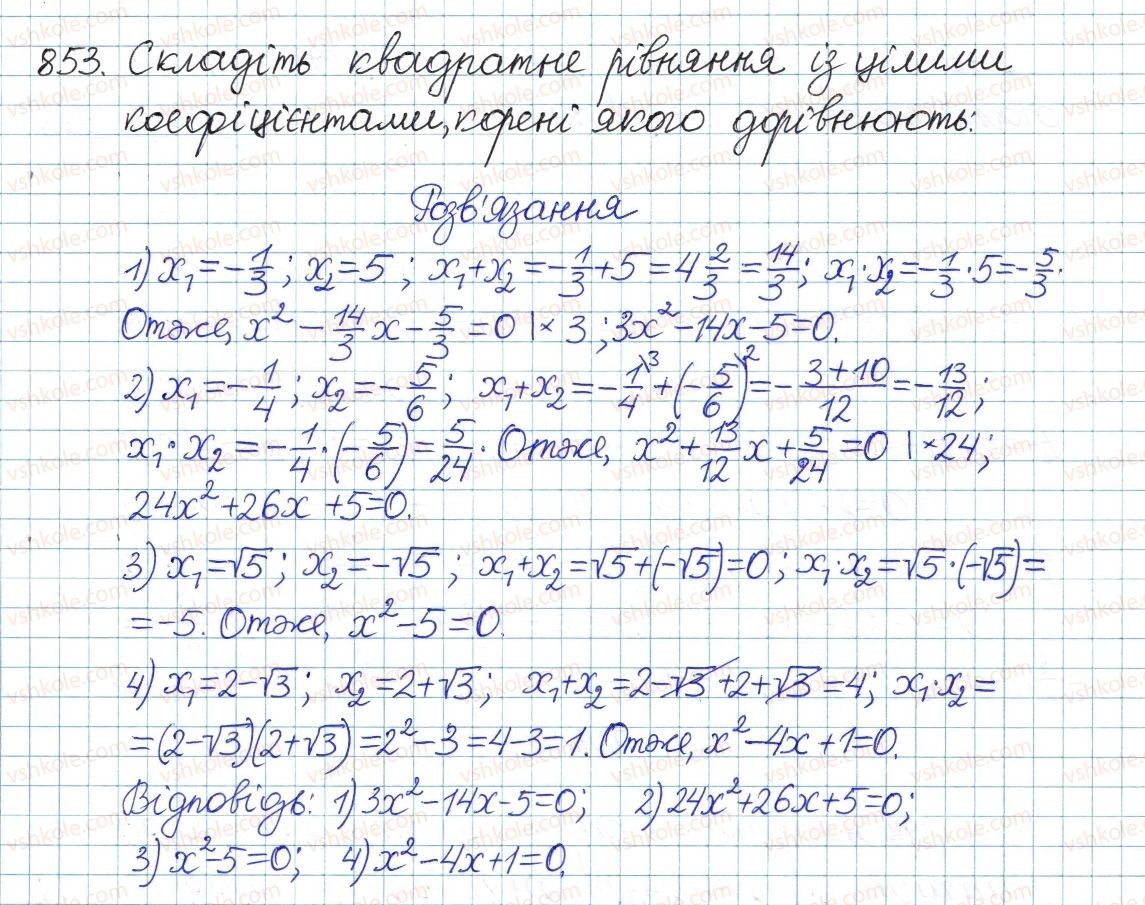 853. Складіть квадратне рівняння із цілими
коефіцієнтами, корені якого дорівнюють:
Розв'язання
1) x₁ = -1/3; x₂ = 5; x₁+x₂ = -1/3+5 = 4 2/3 = 14/3; x₁·x₂ = -1/3·5 = -5/3.
Отже, x² - 14/3 x - 5/3 = 0 | × 3; 3x²-14x-5=0.
2) x₁ = -1/4; x₂ = -5/6; x₁+x₂ = -1/4\³ + (-5/6)\² = - (3+10)/12 = -13/12;
x₁·x₂ = -1/4·(-5/6) = 5/24. Отже, x² + 13/12 x + 5/24 = 0 | ×24;
24x²+26x+5=0.
3) x₁=√5; x₂=-√5; x₁+x₂=√5+(-√5)=0; x₁·x₂=√5·(-√5)=
=-5. Отже, x²-5=0.
4) x₁=2-√3; x₂=2+√3; x₁+x₂=2-√3+2+√3=4; x₁·x₂=
=(2-√3)(2+√3)=2²-3=4-3=1. Отже, x²-4x+1=0.
Відповідь: 1) 3x²-14x-5=0; 2) 24x²+26x+5=0;
3) x²-5=0; 4) x²-4x+1=0.
vshkole.com